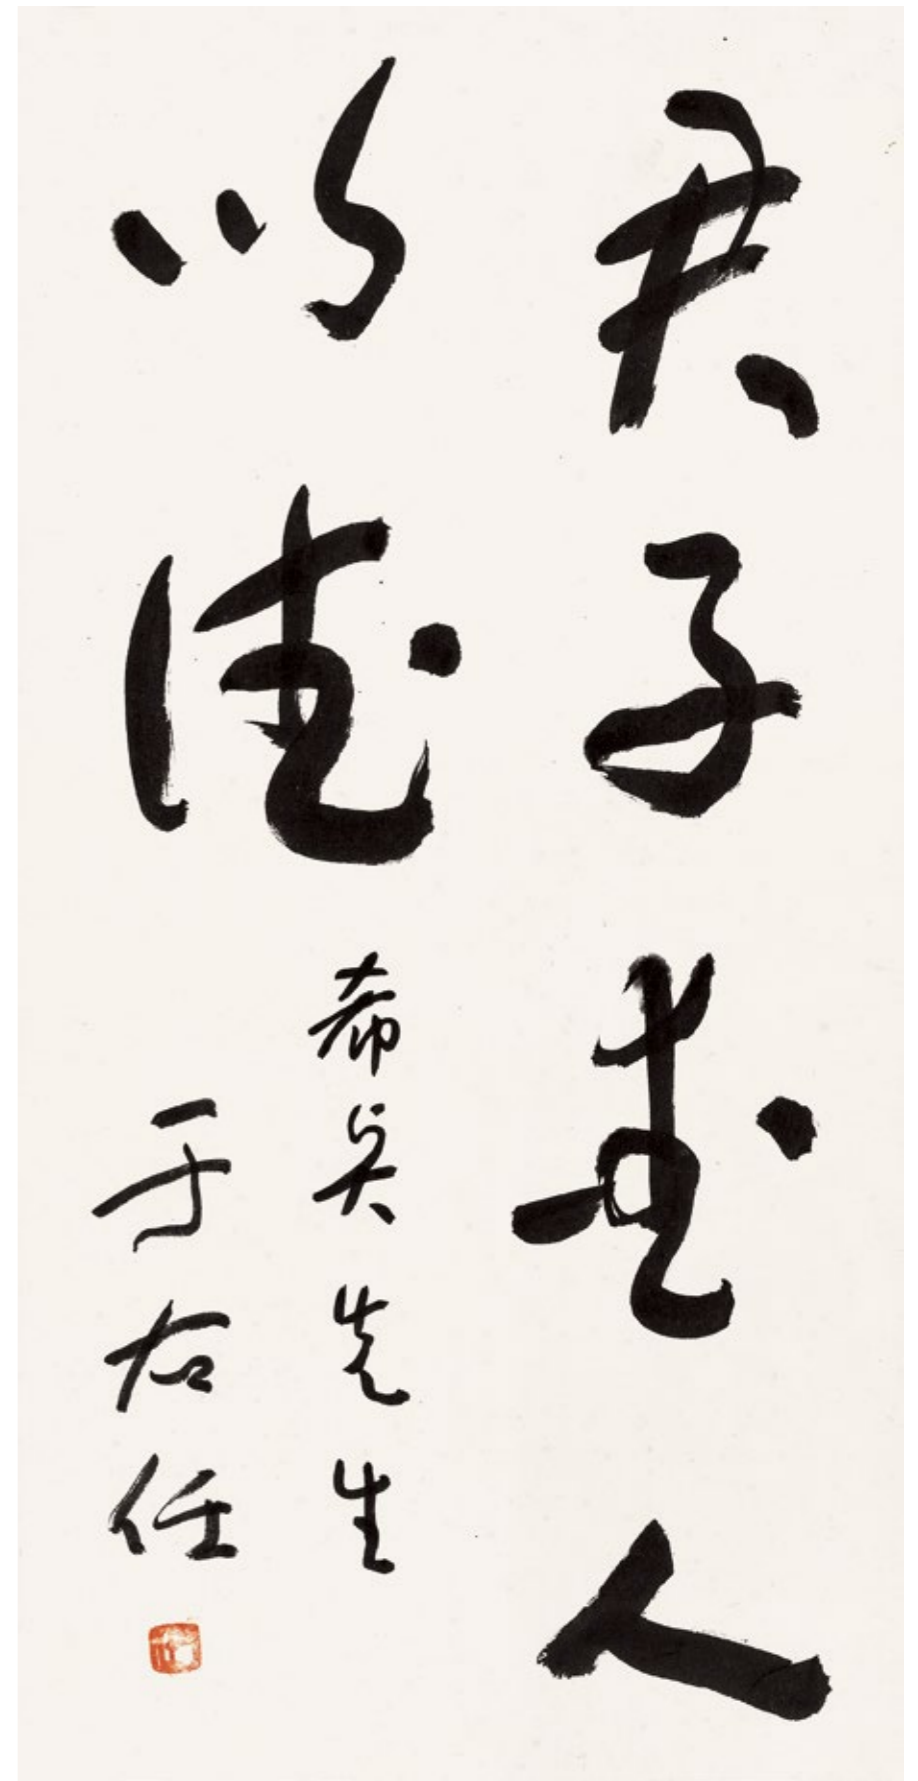 君子愛人
以德
希 先生
于右任